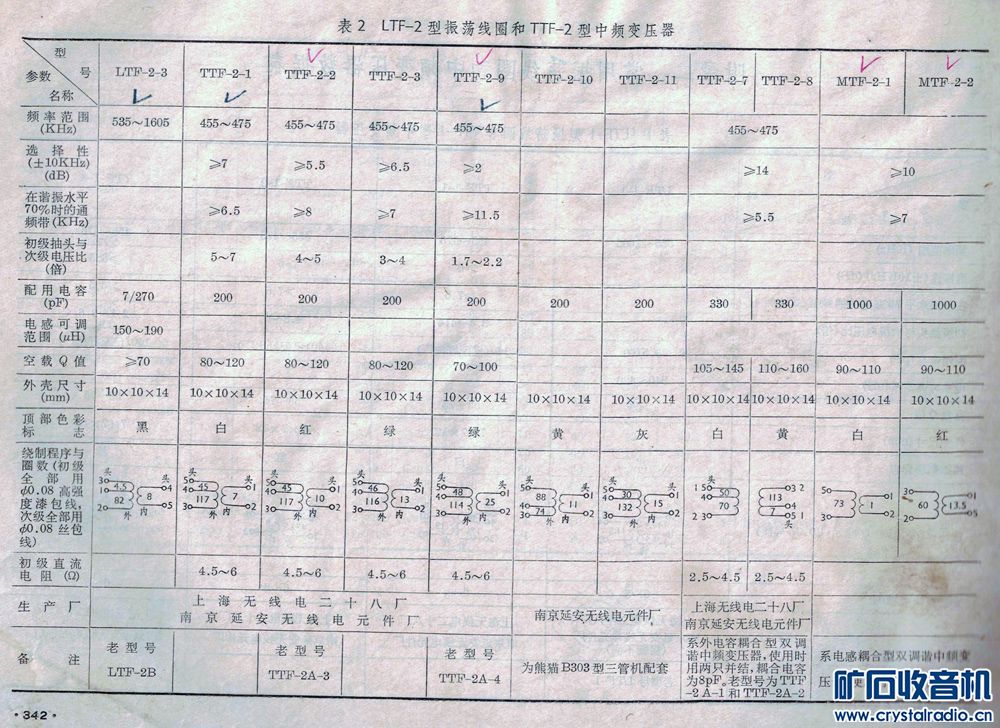 表 2 LTF-2 型振荡线圈和 TTF-2 型中频变压器
型 号
参数
名称
LTF-2-3 TTF-2-1 TTF-2-2 TTF-2-3 TTF-2-9 TTF-2-10 TTF-2-11 TTF-2-7 TTF-2-8 MTF-2-1 MTF-2-2
频率范围
(KHz)
535~1605 455~475 455~475 455~475 455~475 455~475
选择性
(±10KHz)
(dB)
≥7 ≥5.5 ≥6.5 ≥2 ≥14 ≥10
在谐振水平
70%时的通
频带(KHz)
≥6.5 ≥8 ≥7 ≥11.5 ≥5.5 ≥7
初级抽头与
次级电压比
(倍)
5~7 4~5 3~4 1.7~2.2
配用电容
(pF)
7/270 200 200 200 200 200 200 330 330 1000 1000
电感可调
范围 (μH)
150~190
空载 Q 值
≥70 80~120 80~120 80~120 70~100 105~145 110~160 90~110 90~110
外壳尺寸
(mm)
10×10×14 10×10×14 10×10×14 10×10×14 10×10×14 10×10×14 10×10×14 10×10×14 10×10×14 10×10×14 10×10×14
顶部色彩
标志
黑 白 红 绿 绿 黄 灰 白 黄 白 红
绕制程序与
圈数(初级
全部用
φ0.08 高强
度漆包线,
次级全部用
φ0.08 丝包
线)
头 3 1 2 4.5 82 外 头 8 4 5 内
头 5 4 3 45 117 外 头 7 1 2 内
头 5 4 3 45 117 外 头 10 1 2 内
头 5 4 3 46 116 外 头 13 1 2 内
头 5 4 3 48 114 外 头 25 1 2 内
头 5 4 3 88 74 外 头 11 1 2 内
头 5 4 3 30 132 外 头 15 1 2 内
1 5 4 2 3 50 70
3 2 4 5 1 113 7
5 3 73 1 1 2
3 2 60 13.5 1 5
初级直流
电阻 (Ω)
4.5~6 4.5~6 4.5~6 4.5~6 2.5~4.5 2.5~4.5
生产厂
上海无线电二十八厂
南京延安无线电元件厂
南京延安无线电元件厂
上海无线电二十八厂
南京延安无线电元件厂
备注
老型号
LTF-2B
老型号
TTF-2A-3
老型号
TTF-2A-4
为熊猫 B303 型三管机配套
系外电容耦合型双调
谐中频变压器,使用时
用两只并结,耦合电容
为8pF。老型号为 TTF
-2 A-1 和 TTF-2A-2
系电感耦合型双调谐中频变
压
·342·
矿石收音机
www.crystalradio.cn